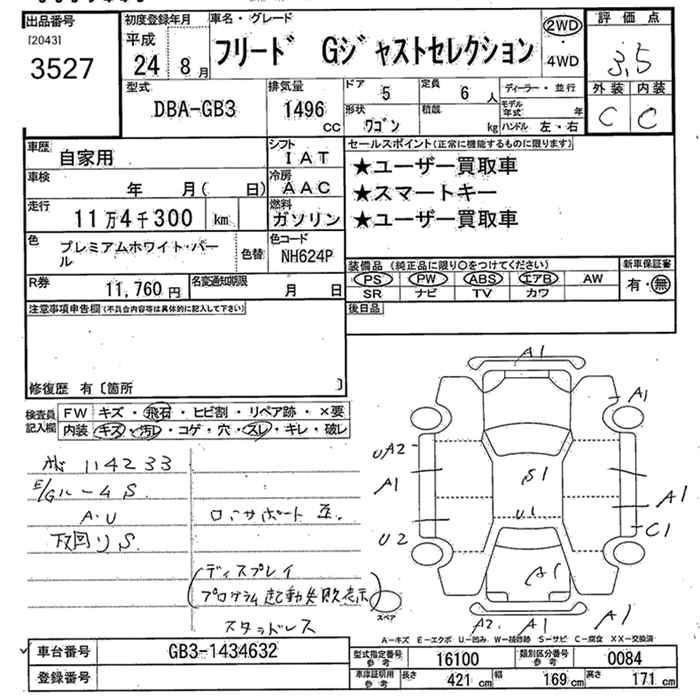 出品番号
[2043]
3527
初度登録年月
平成
24 8 月
車名・グレード
フリード Gジャストセレクション
2WD
・
4WD
評価点
3.5
外装 内装
C C
型式
DBA-GB3
排気量
1496 cc
ドア 5
定員 6 人
形状 ワゴン
積載 kg
ディーラー・並行
モデル年式 年
ハンドル 左・右
車歴 自家用
シフト IAT
車検 年 月( 日)
冷房 AAC
走行 11万4千300 km
燃料 ガソリン
色 プレミアムホワイト・パール
色替
色コード NH624P
R券 11,760 円
名変通知期限 月 日
セールスポイント(正常に機能するものに限ります)
★ユーザー買取車
★スマートキー
★ユーザー買取車
装備品 (純正品に限り○をつけてください)
PS PW ABS エアB AW
SR ナビ TV カワ
新車保証書
有・無
後日品
注意事項申告欄(不具合内容等は具体的に記入して下さい)
修復歴 有〔箇所 〕
検査員記入欄
FW キズ・飛石・ヒビ割・リペア跡・×要
内装 キズ・汚レ・コゲ・穴・スレ・キレ・破レ
114233
E/GルームS
A・U
下回りS
ロアサポート歪
(ディスプレイ
プログラム起動失敗表示)
スタッドレス
A1
A1
UA2
A1
S1
A1
U1
C1
U2
A1
A2 A1 A1
スペア
A-キズ E-エクボ U-凹み W-補修跡 S-サビ C-腐食 XX-交換済
車台番号 GB3-1434632
登録番号
型式指定番号参考 16100
類別区分番号参考 0084
車庫証明用参考 長さ 421 cm 幅 169 cm 高さ 171 cm